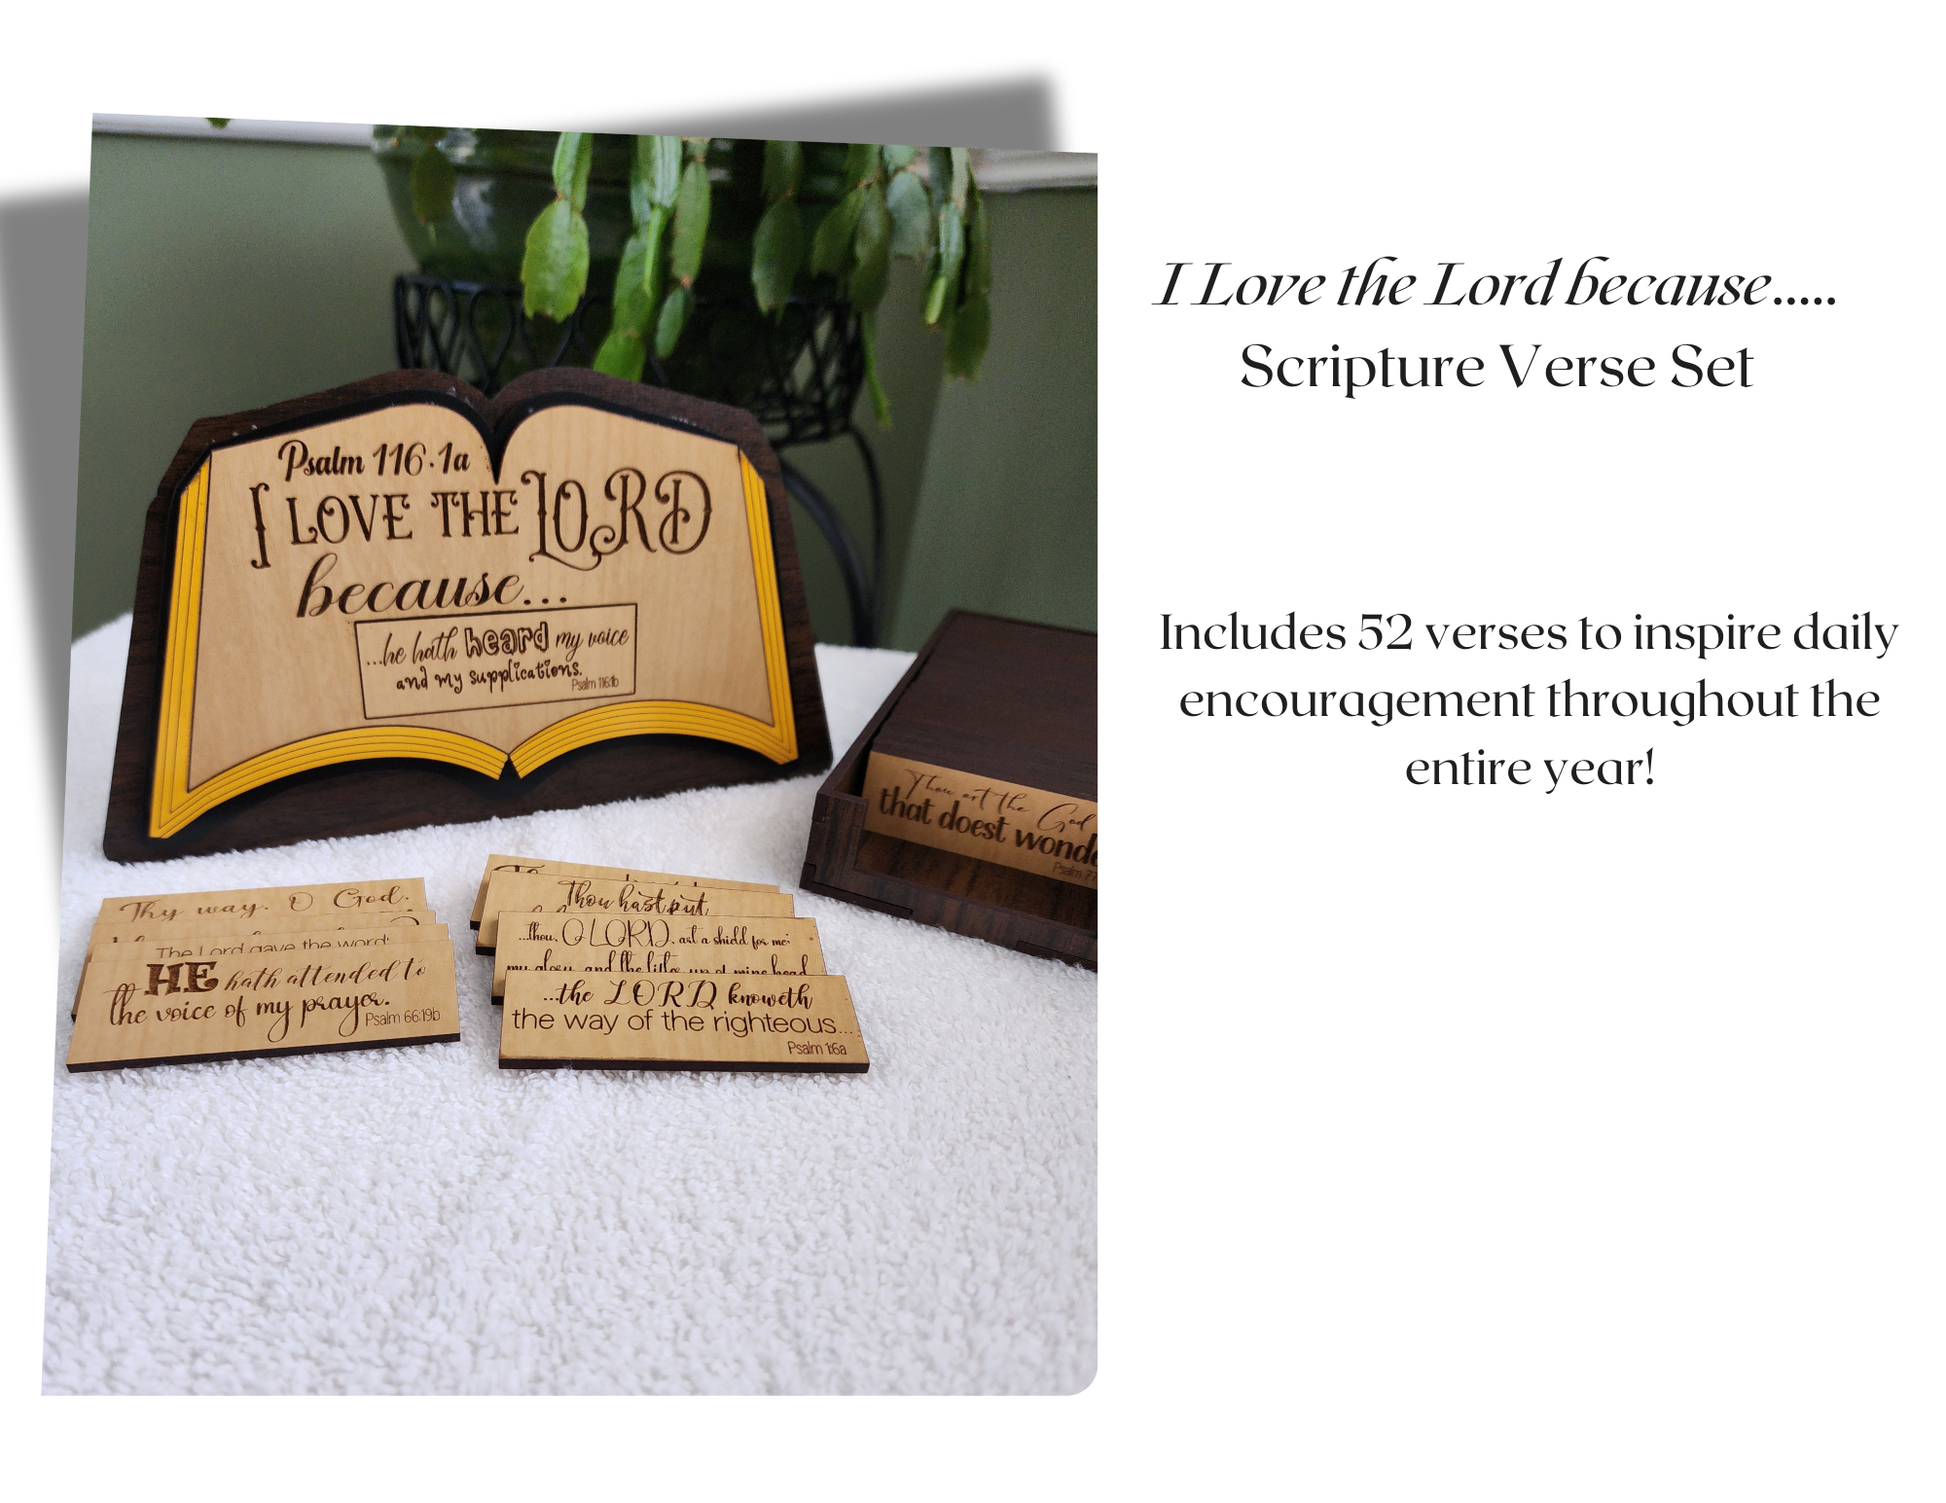 I Love the Lord because.....
Scripture Verse Set
Includes 52 verses to inspire daily
encouragement throughout the
entire year!
Psalm 116:1a
I LOVE THE LORD
because...
...he hath heard my voice
and my supplications.
Psalm 116:1b
Thou art the God
that doest
Psalm
Thy way, O God,
The Lord gave the word:
HE hath attended to
the voice of my prayer.
Psalm 66:19b
Thou hast put
...thou, O LORD, art a shield for me;
my glory, and the lifter up of mine head.
...the LORD knoweth
the way of the righteous...
Psalm 1:6a